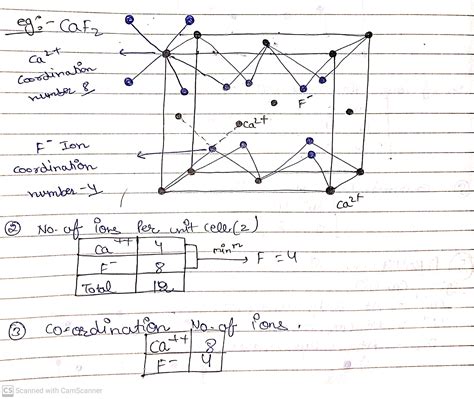 eg:- CaF2
Ca2+
coordination
number 8
F-
Ca2+
F- Ion
coordination
number-4
Ca2+
② No. of ions per unit cell (z)
Ca++ 4
F- 8
Total 12
F = 4
③ co-ordination No. of ions.
Ca++ 8
F- 4
CS Scanned with CamScanner